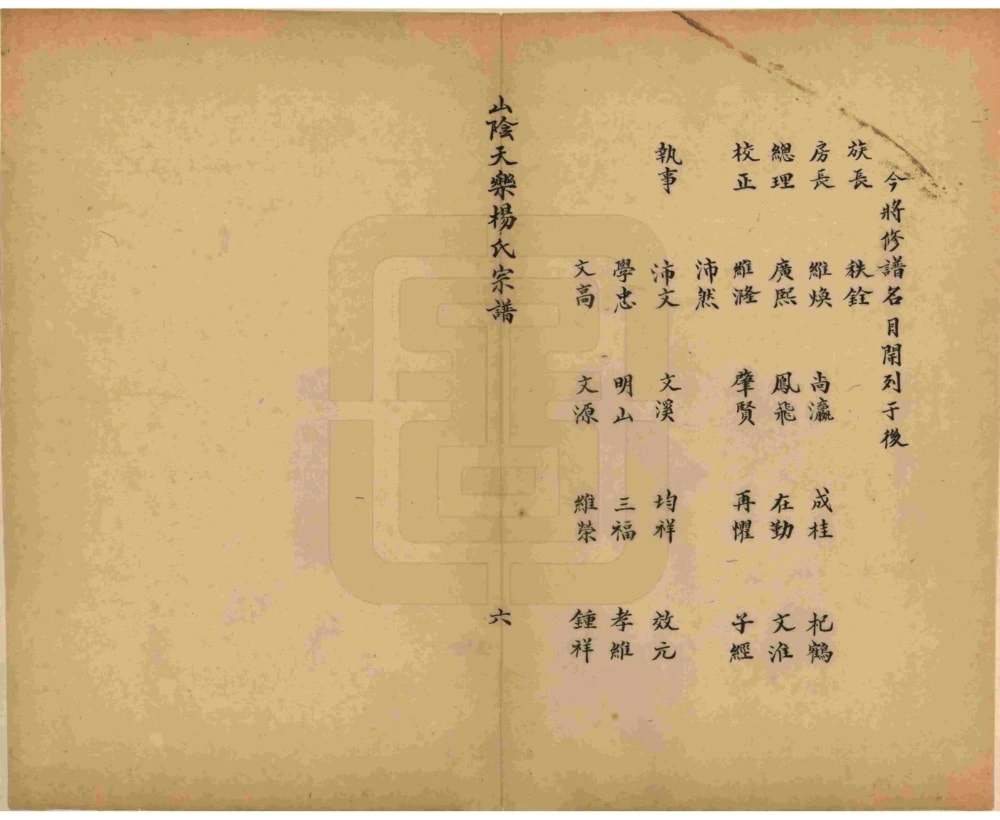 今將修譜名目開列于後
族長 秩銓
房長 維煥 尚瀛 成桂 杞鶴
總理 廣熙 鳳飛 在勤 文淮
校正 維潅 肇賢 再懼 子經
沛然
執事 沛文 文溪 均祥 效元
學忠 明山 三福 孝維
文高 文源 維榮 鍾祥
山陰天樂楊氏宗譜 六